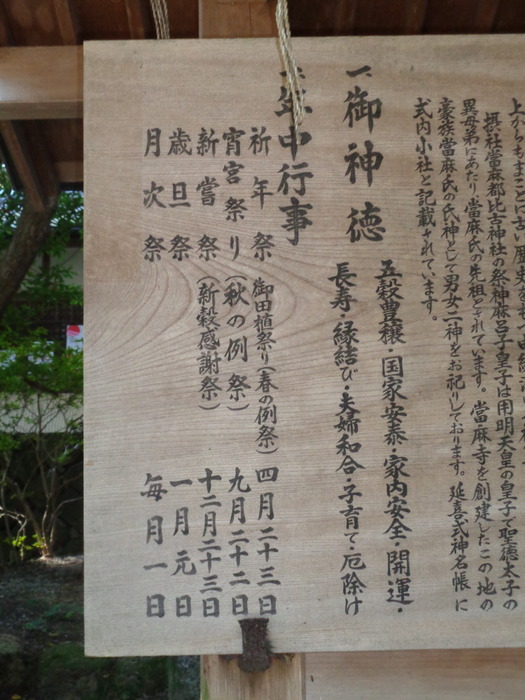 摂社當麻都比古神社の祭神麻呂子皇子は用明天皇の皇子で聖徳太子の
異母弟にあたり當麻氏の先祖とされています。當麻寺を創建したこの地の
豪族當麻氏の氏神として男女二神をお祀りしております。延喜式神名帳に
式内小社と記載されています。
一、御神徳
五穀豊穣・国家安泰・家内安全・開運・
長寿・縁結び・夫婦和合・子育て・厄除け
年中行事
祈年祭 御田植祭り(春の例祭) 四月二十三日
宵宮祭り(秋の例祭) 九月二十二日
新嘗祭(新穀感謝祭) 十二月二十三日
歳旦祭 一月元日
月次祭 毎月一日